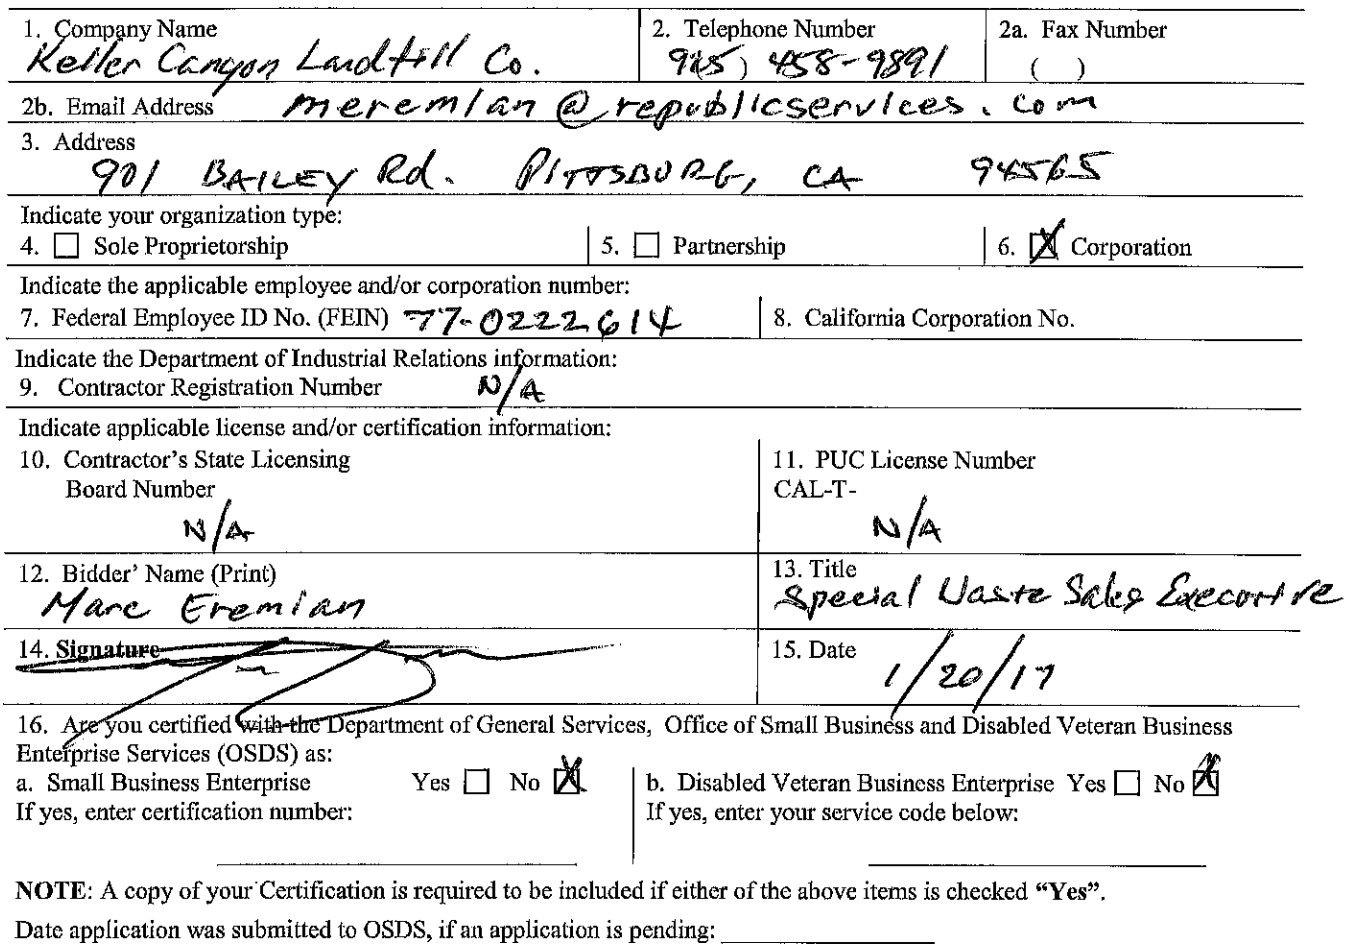 1. Company Name
Keller Canyon Landfill Co.
2. Telephone Number
925) 458-9891
2a. Fax Number
( )
2b. Email Address meremian@republicservices.com
3. Address
901 BAILEY Rd. PITTSBURG, CA 94565
Indicate your organization type:
4. ☐ Sole Proprietorship
5. ☐ Partnership
6. ☒ Corporation
Indicate the applicable employee and/or corporation number:
7. Federal Employee ID No. (FEIN) 77-0222614
8. California Corporation No.
Indicate the Department of Industrial Relations information:
9. Contractor Registration Number N/A
Indicate applicable license and/or certification information:
10. Contractor's State Licensing
Board Number
N/A
11. PUC License Number
CAL-T-
N/A
12. Bidder' Name (Print)
Marc Eremian
13. Title
Special Waste Sales Executive
14. Signature
15. Date
1/20/17
16. Are you certified with the Department of General Services, Office of Small Business and Disabled Veteran Business
Enterprise Services (OSDS) as:
a. Small Business Enterprise Yes ☐ No ☒
If yes, enter certification number:
b. Disabled Veteran Business Enterprise Yes ☐ No ☒
If yes, enter your service code below:
NOTE: A copy of your Certification is required to be included if either of the above items is checked "Yes".
Date application was submitted to OSDS, if an application is pending: